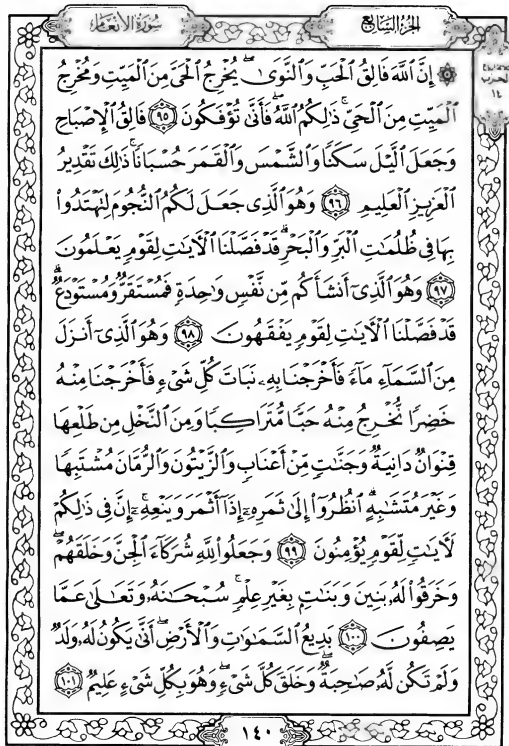 سُورَةُ الأَنْعَام
الجُزْءُ السَّابِعُ
الحزب
١٤
۞ إِنَّ ٱللَّهَ فَالِقُ ٱلْحَبِّ وَٱلنَّوَىٰۖ يُخْرِجُ ٱلْحَيَّ مِنَ ٱلْمَيِّتِ وَمُخْرِجُ
ٱلْمَيِّتِ مِنَ ٱلْحَيِّۚ ذَٰلِكُمُ ٱللَّهُۖ فَأَنَّىٰ تُؤْفَكُونَ ٩٥ فَالِقُ ٱلْإِصْبَاحِ
وَجَعَلَ ٱلَّيْلَ سَكَنًا وَٱلشَّمْسَ وَٱلْقَمَرَ حُسْبَانًاۚ ذَٰلِكَ تَقْدِيرُ
ٱلْعَزِيزِ ٱلْعَلِيمِ ٩٦ وَهُوَ ٱلَّذِى جَعَلَ لَكُمُ ٱلنُّجُومَ لِتَهْتَدُواْ
بِهَا فِى ظُلُمَٰتِ ٱلْبَرِّ وَٱلْبَحْرِۗ قَدْ فَصَّلْنَا ٱلْأٓيَٰتِ لِقَوْمٍ يَعْلَمُونَ
٩٧ وَهُوَ ٱلَّذِىٓ أَنشَأَكُم مِّن نَّفْسٍ وَٰحِدَةٍ فَمُسْتَقَرٌّ وَمُسْتَوْدَعٌۗ
قَدْ فَصَّلْنَا ٱلْأٓيَٰتِ لِقَوْمٍ يَفْقَهُونَ ٩٨ وَهُوَ ٱلَّذِىٓ أَنزَلَ
مِنَ ٱلسَّمَآءِ مَآءً فَأَخْرَجْنَا بِهِۦ نَبَاتَ كُلِّ شَىْءٍ فَأَخْرَجْنَا مِنْهُ
خَضِرًا نُّخْرِجُ مِنْهُ حَبًّا مُّتَرَاكِبًا وَمِنَ ٱلنَّخْلِ مِن طَلْعِهَا
قِنْوَانٌ دَانِيَةٌ وَجَنَّٰتٍ مِّنْ أَعْنَابٍ وَٱلزَّيْتُونَ وَٱلرُّمَّانَ مُشْتَبِهًا
وَغَيْرَ مُتَشَٰبِهٍۗ ٱنظُرُوٓاْ إِلَىٰ ثَمَرِهِۦٓ إِذَآ أَثْمَرَ وَيَنْعِهِۦٓۚ إِنَّ فِى ذَٰلِكُمْ
لَأٓيَٰتٍ لِّقَوْمٍ يُؤْمِنُونَ ٩٩ وَجَعَلُواْ لِلَّهِ شُرَكَآءَ ٱلْجِنَّ وَخَلَقَهُمْۖ
وَخَرَقُواْ لَهُۥ بَنِينَ وَبَنَٰتٍۭ بِغَيْرِ عِلْمٍۚ سُبْحَٰنَهُۥ وَتَعَٰلَىٰ عَمَّا
يَصِفُونَ ١٠٠ بَدِيعُ ٱلسَّمَٰوَٰتِ وَٱلْأَرْضِۖ أَنَّىٰ يَكُونُ لَهُۥ وَلَدٌ
وَلَمْ تَكُن لَّهُۥ صَٰحِبَةٌۖ وَخَلَقَ كُلَّ شَىْءٍۖ وَهُوَ بِكُلِّ شَىْءٍ عَلِيمٌ ١٠١
١٤٠